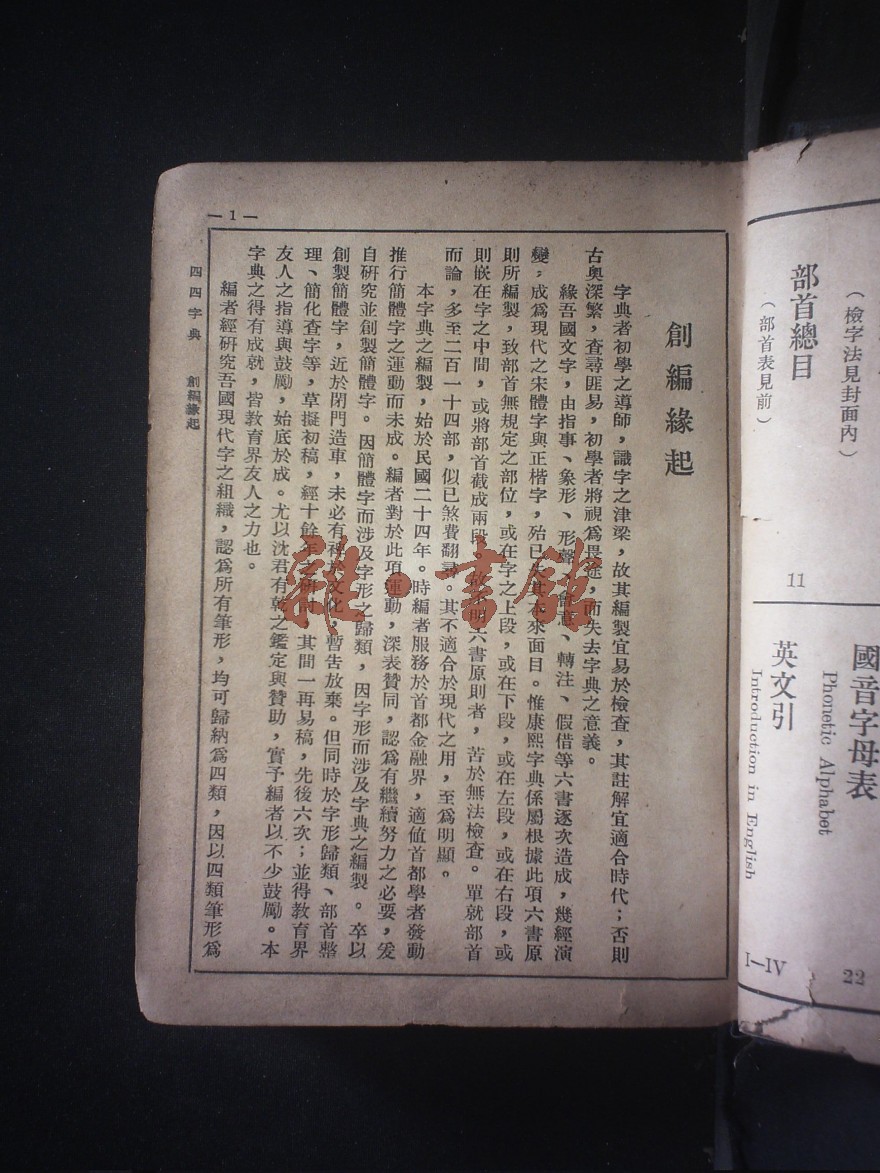 部首總目
（檢字法見封面內）
（部首表見前）
11
國音字母表
Phonetic Alphabet
22
英文引
Introduction in English
I—IV
— 1 —
創編緣起
字典者初學之導師，識字之津梁，故其編製宜易於檢查，其註解宜適合時代；否則
古奧深繁，查尋匪易，初學者將視爲畏途，而失去字典之意義。
緣吾國文字，由指事、象形、形聲、會意、轉注、假借等六書逐次造成，幾經演
變，成爲現代之宋體字與正楷字，殆已失其本來面目。惟康熙字典係屬根據此項六書原
則所編製，致部首無規定之部位，或在字之上段，或在下段，或在左段，或在右段，或
則嵌在字之中間，或將部首截成兩段，故不明六書原則者，苦於無法檢查。單就部首
而論，多至二百一十四部，似已煞費翻尋。其不適合於現代之用，至爲明顯。
本字典之編製，始於民國二十四年。時編者服務於首都金融界，適值首都學者發動
推行簡體字之運動而未成。編者對於此項運動，深表贊同，認爲有繼續努力之必要，爰
自研究並創製簡體字。因簡體字而涉及字形之歸類，因字形而涉及字典之編製。卒以
創製簡體字，近於閉門造車，未必有裨於文化，暫吿放棄。但同時於字形歸類、部首整
理、簡化查字等，草擬初稿，經十餘年之研討，其間一再易稿，先後六次；並得教育界
友人之指導與鼓勵，始底於成。尤以沈君有乾之鑑定與贊助，實予編者以不少鼓勵。本
字典之得有成就，皆教育界友人之力也。
編者經研究吾國現代字之組織，認爲所有筆形，均可歸納爲四類，因以四類筆形爲
四四字典 創編緣起
雜·書館